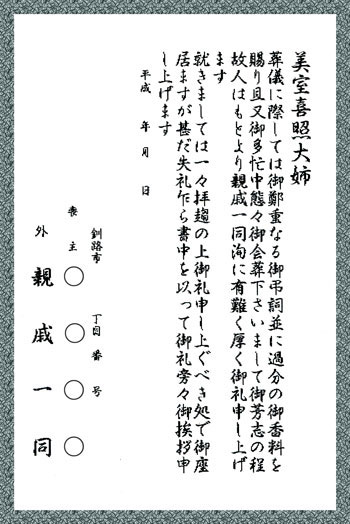 美室喜照大姉
葬儀に際しては御鄭重なる御弔詞並に過分の御香料を
賜り且又御多忙中態々御会葬下さいまして御芳志の程
故人はもとより親戚一同洵に有難く厚く御礼申し上げ
ます
就きましては一々拝趨の上御礼申し上ぐべき処で御座
居ますが甚だ失礼乍ら書中を以って御礼旁々御挨拶申
し上げます
平成 年 月 日
釧路市 丁目 番 号
喪主 〇 〇 〇 〇
外 親戚一同